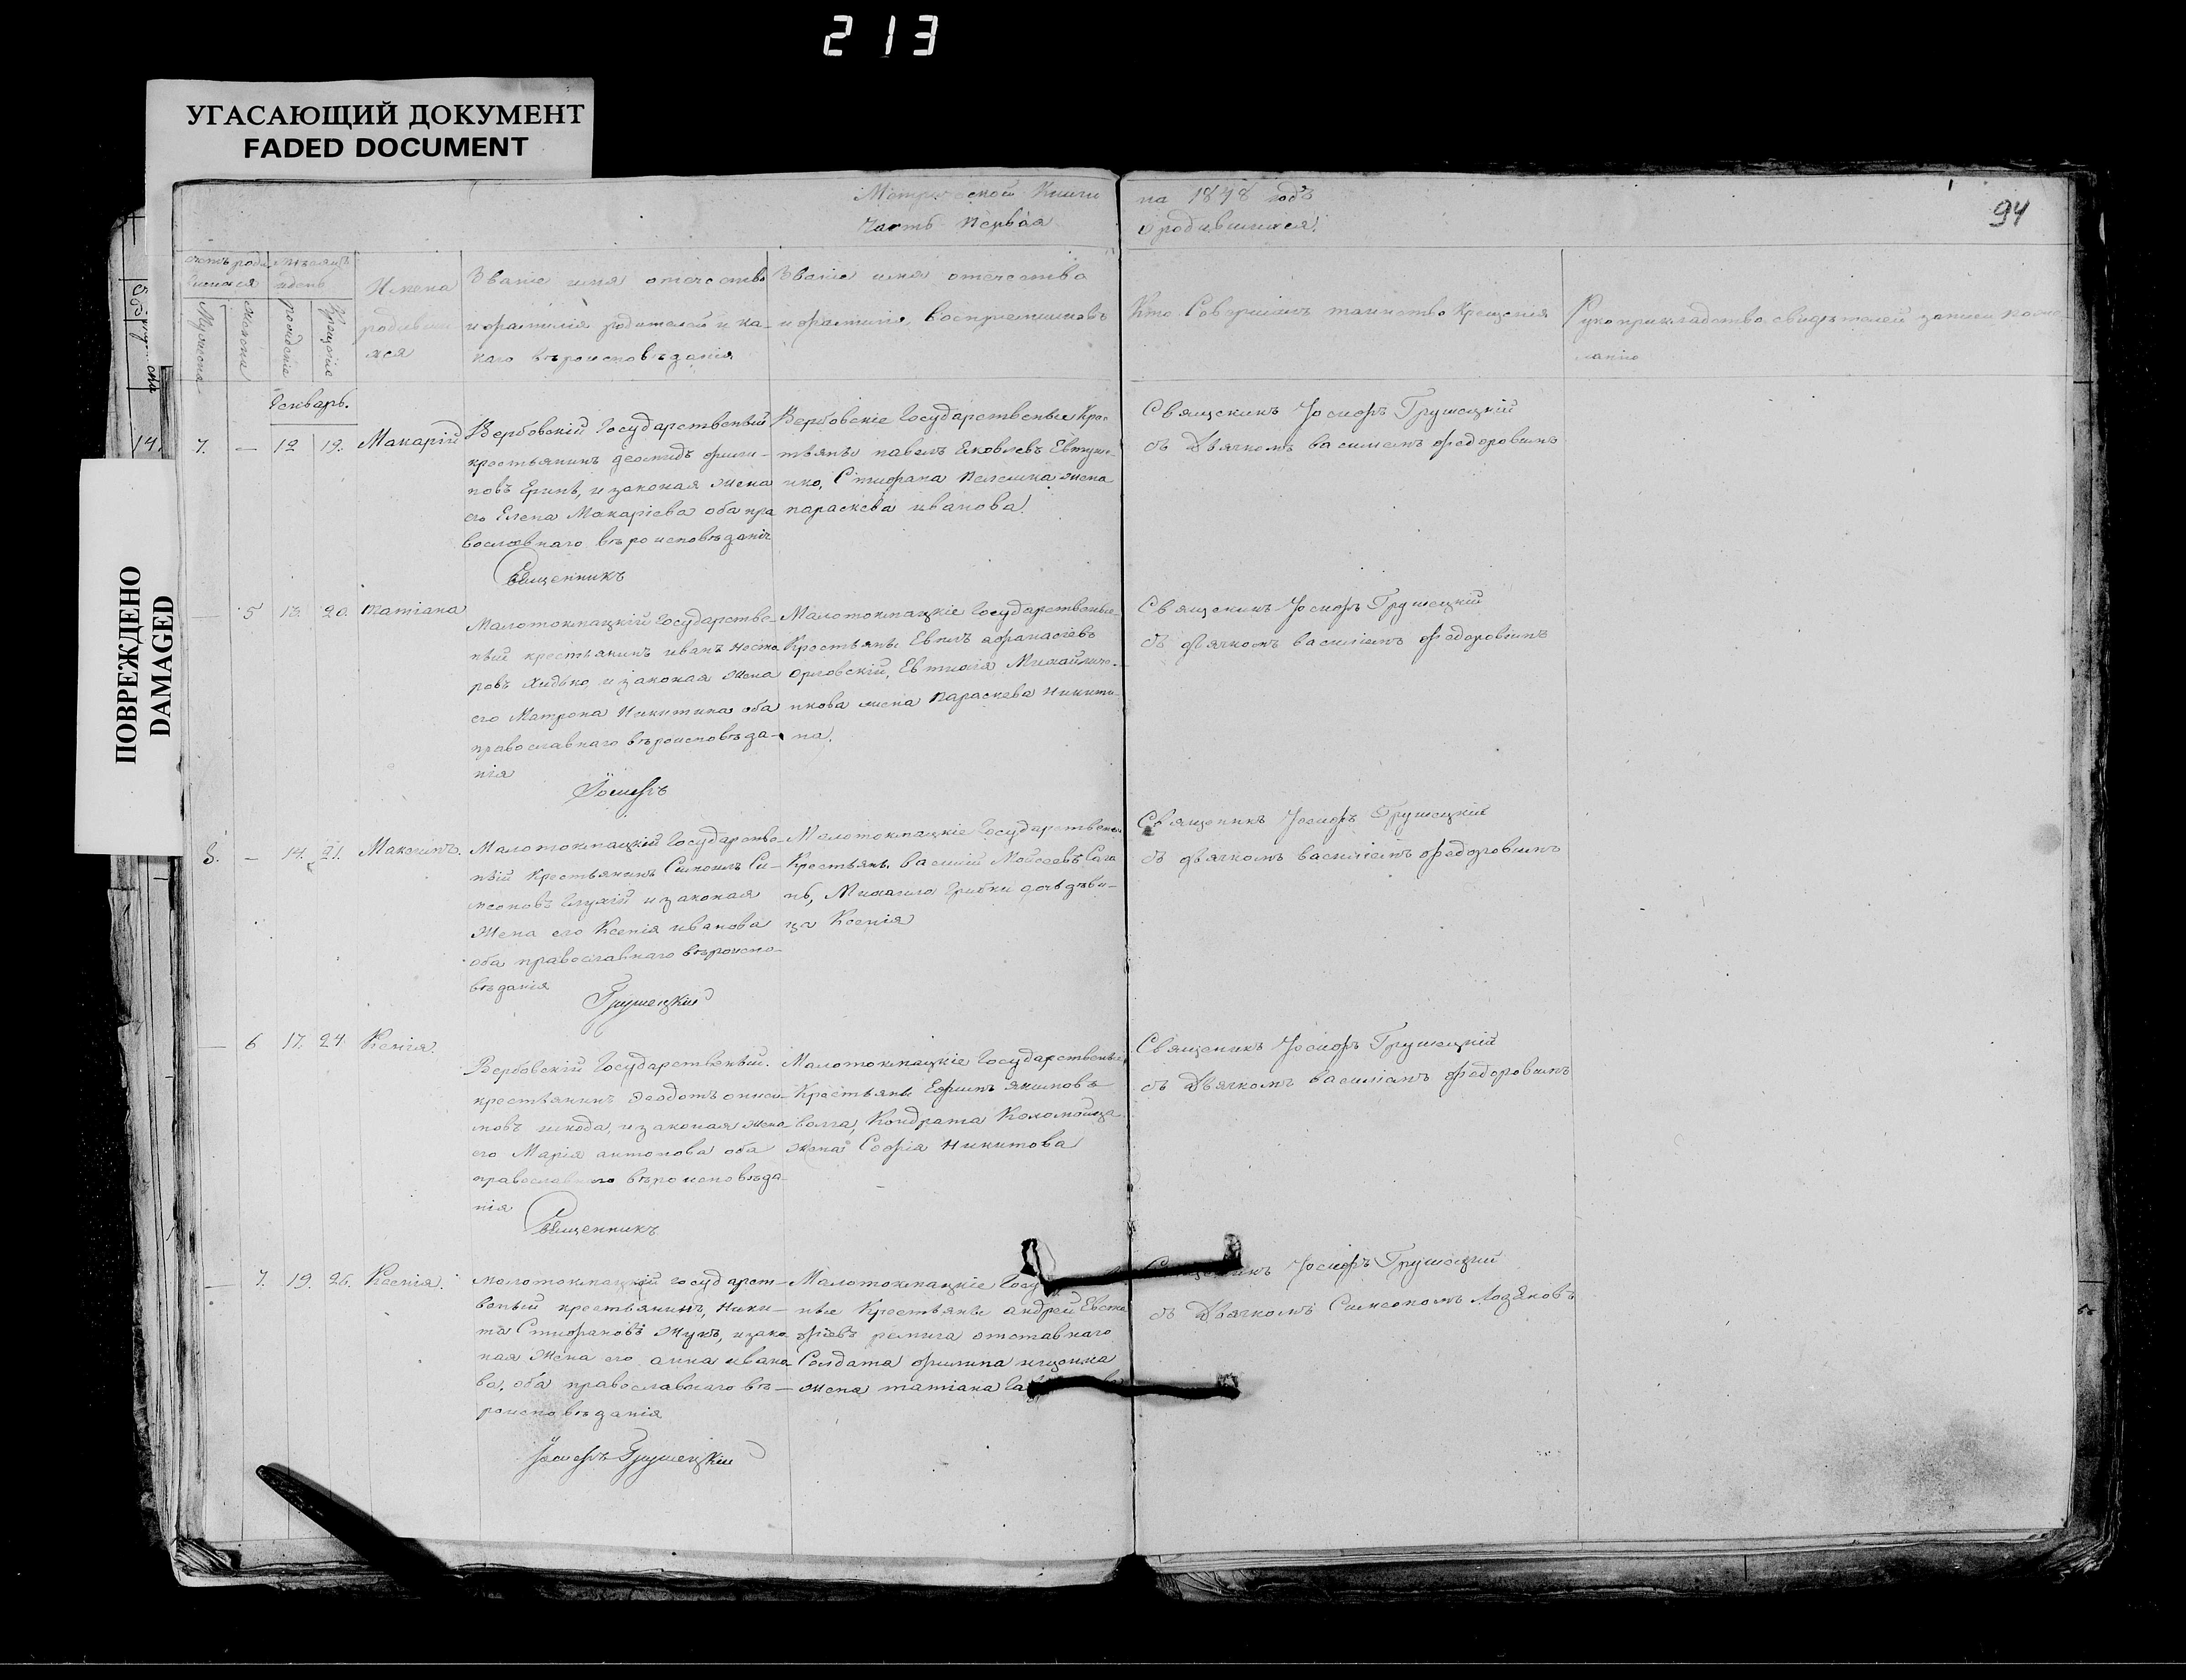 213
УГАСАЮЩИЙ ДОКУМЕНТ
FADED DOCUMENT
ПОВРЕЖДЕНО
DAMAGED
94
Метрической Книги на 1848 годъ
Часть Первая о родившихся.
Имена родивши мся
Мужеска
Женска
рожденія
Крещенія
Званіе имя отечество
и фамилія родителей и ка-
каго вѣроисповѣданія
Званіе имя отечество
и фамилія, воспріемниковъ
Кто Совершилъ таинство Крещенія
Рукоприкладство свидѣтелей записи по же-
ланію
Генварь.
7. — 12 19. Макарій
Вербовскій Государственый
крестьянинъ
и законая жена
его Елена Макаріева оба пра
вославнаго вѣроисповѣданія
Вербовскіе Государственые Крес
тьяне павелъ Яковлевъ
жена
параскева иванова
Священикъ Іосифъ Грушецкій
съ Дьячкомъ василіемъ федоровымъ
Священникъ
— 5 13. 20. татіана
Малотокмацкій Государстве-
ный крестьянинъ иванъ несто
ровъ и законая жена
его Матрона Никитина оба
православнаго вѣроисповѣда-
нія
Малотокмацкіе Государственые
Крестьяне афанасіевъ
орловскій, Михайличе-
нкова жена Параскева Никити-
на.
Священикъ Іосифъ Грушецкій
съ дьячкомъ василіемъ федоровымъ
Іосифъ
8. — 14. 21. Максимъ.
Малотокмацкій Государстве-
ный Крестьянинъ Симеонъ Си-
меоновъ Глухій и законая
Жена его Ксенія иванова
оба православнаго вѣроиспо-
вѣданія
Малотокмацкіе Государствены
Крестьяне василій Мойсеевъ
Михаила дочь дѣви-
ца Ксенія
Священикъ Іосифъ Грушецкій
съ дьячкомъ василіемъ федоровымъ
Грушецкій
— 6 17. 24 Ксенія.
Вербовскій Государственый.
крестьянинъ Феодотъ ониси-
мовъ шкода, и законая жена
его Марія антонова оба
православнаго вѣроисповѣда-
нія
Малотокмацкіе Государственые
Крестьяне Ефимъ якимовъ
Волга, Кондрата Коломойца
жена Софія Никитова
Священикъ Іосифъ Грушецкій
съ Дьячкомъ василіемъ федоровымъ
Священникъ
— 7. 19. 26. Ксенія.
малотокмацкій государст-
веный крестьянинъ, Ники-
та Стифановъ Жукъ, и зако
ная Жена его анна ивано-
ва, оба православнаго вѣ-
роисповѣданія
Малотокмацкіе
ные Крестьяне андрей Евста
фіевъ ремига отставнаго
Солдата филипа
жена татіана
Іосифъ Грушецкій
съ Дьячкомъ Симеономъ
Іосифъ Грушецкій